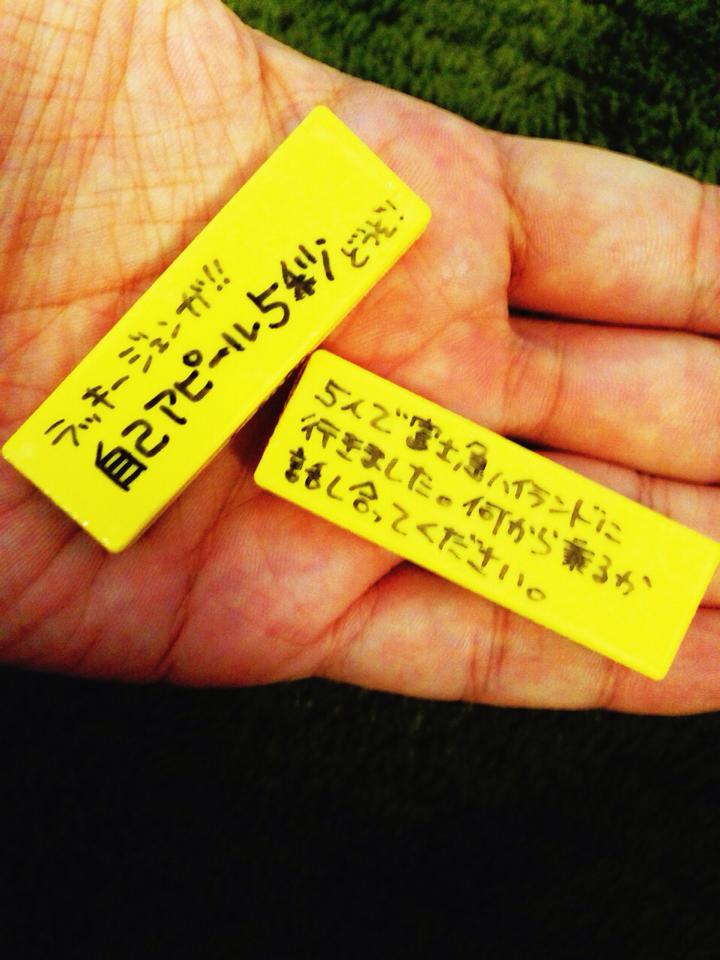 ラッキージェンガ!!
自己アピール5秒
5人で富士急ハイランドに
行きました。何から乗るか
話し合ってください。